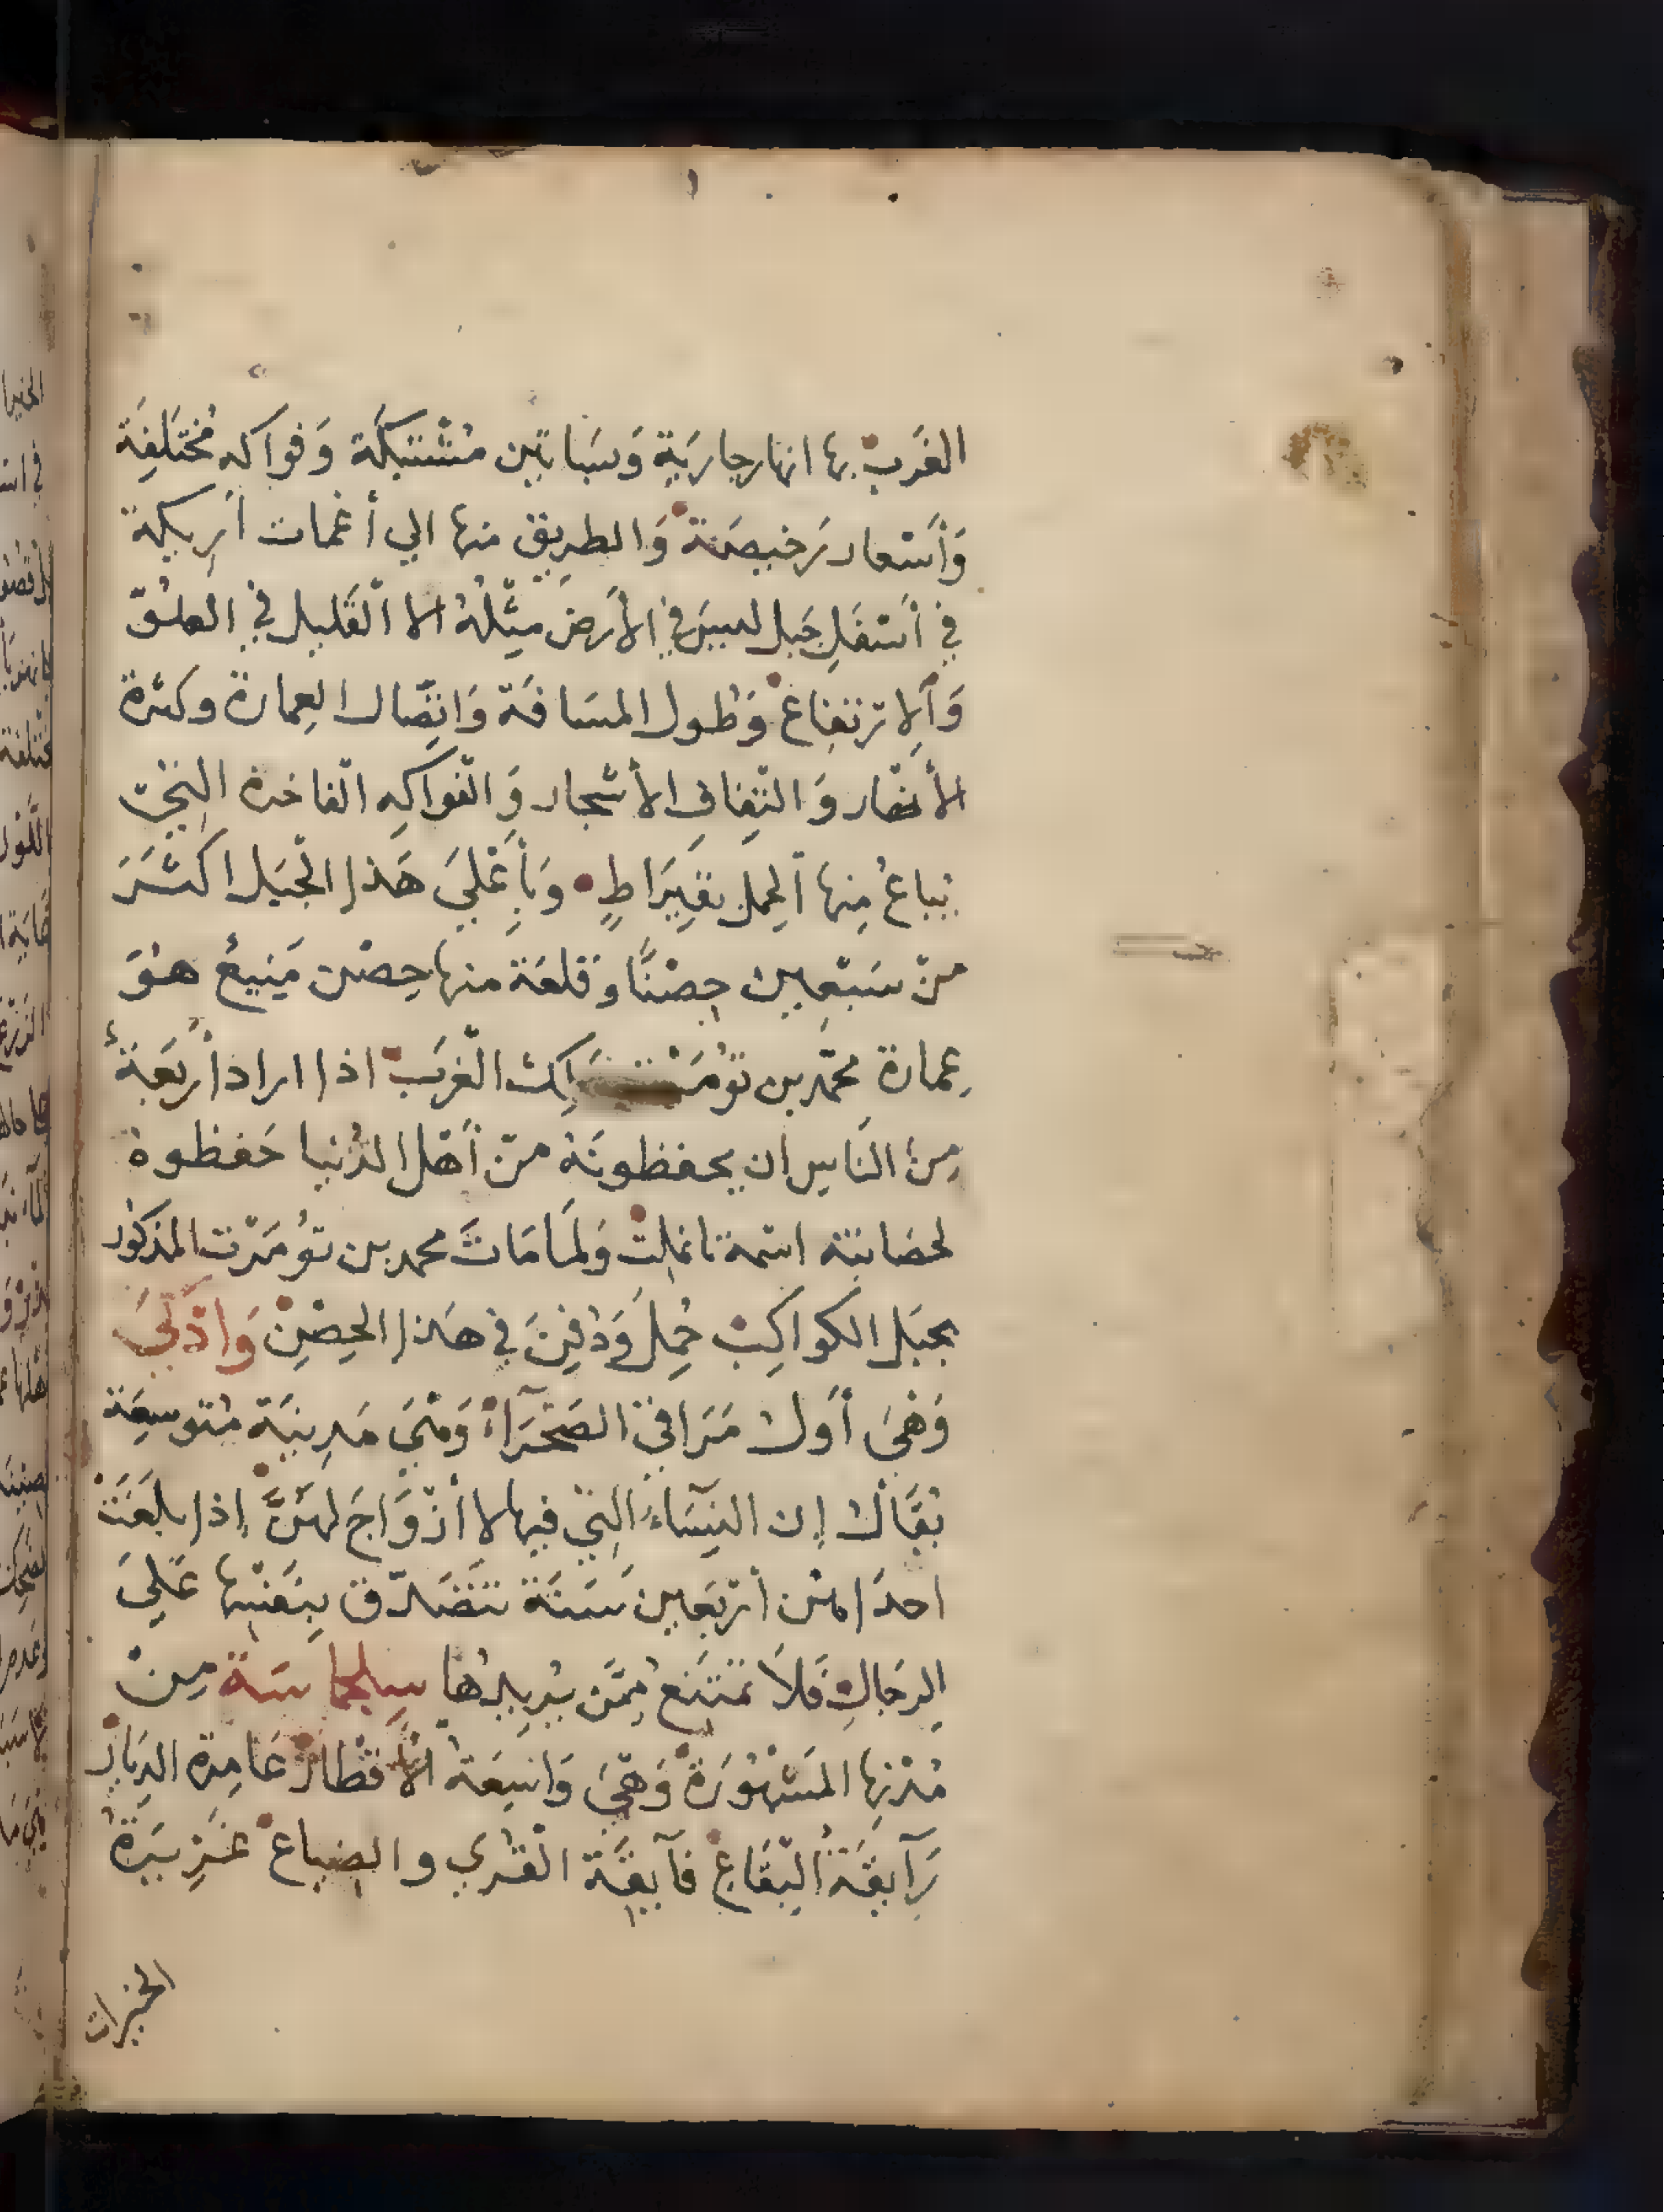 الغَربْ بها انهار جاريَةٍ وَبسَاتين مُشْتبكَة وَفواكه مُختَلفَة
وَأسْعار رَخيصَة وَالطريق منها الي أغمات أريكة
في أسْفَلِ جَبل ليسَ في الأرضَ مِثْلُهُ الا القَليل في العلُوّ
وَالارتفاعْ وَطول المسَافَة وَاتِصَال العِمارة وكثرة
الأنهار وَالتِفافِ الأشجار وَالفَواكِه الفاخرة التِيّ
يُباعُ مِنها الحِمل بقِيرَاطٍ وَبأعْليَ هَذا الجْبَل اكثَرَ
منْ سَبْعِين حِصْنًا وَقلعَة منها حِصْن مَنِيعُ هُوَ
عِمارة محمّد بن تُومَرْت مَلِك الغْرَب اذا اراد أربَعَةُ
مِنَ النَاسِ ان يحفظونَهُ منْ أهْل الدُنيا حَفظوهُ
لحصَانتهِ اسْمهُ تانمِلتْ وَلمَا مَاتَ محمد بن تُومَرْت المذكُور
بجبَل الكواكِبْ حُمِلَ وَدُفِنَ في هَذا الحِصْنِ وَاذكيَ
وَهْيَ أوَل مَرَاقيّ الصَحْرَاءْ وَهْيَ مَدِينَة مُتوسِعَة
يُقَالُ إن النِسَاءَ التِيّ فيها لا أزْوَاجَ لهَنَّ إذا بلَغَتْ
احدَاهُن أربَعين سَنَة تتَصَدّق بِنَفْسِها عَليَ
الرجَالِ فَلاَ تمْتَنعْ مِمَن يُرِيدُها سِجلماسَة مِنْ
مُدْنِها المَشْهُورَةْ وَهْيَ وَاسِعَة الأقطَارْ عَامِرة الدِيَارْ
رَآيقَةُ البِقَاعْ فآيقَة القُري والضِياعْ غَزِيرَةُ
الخيرات